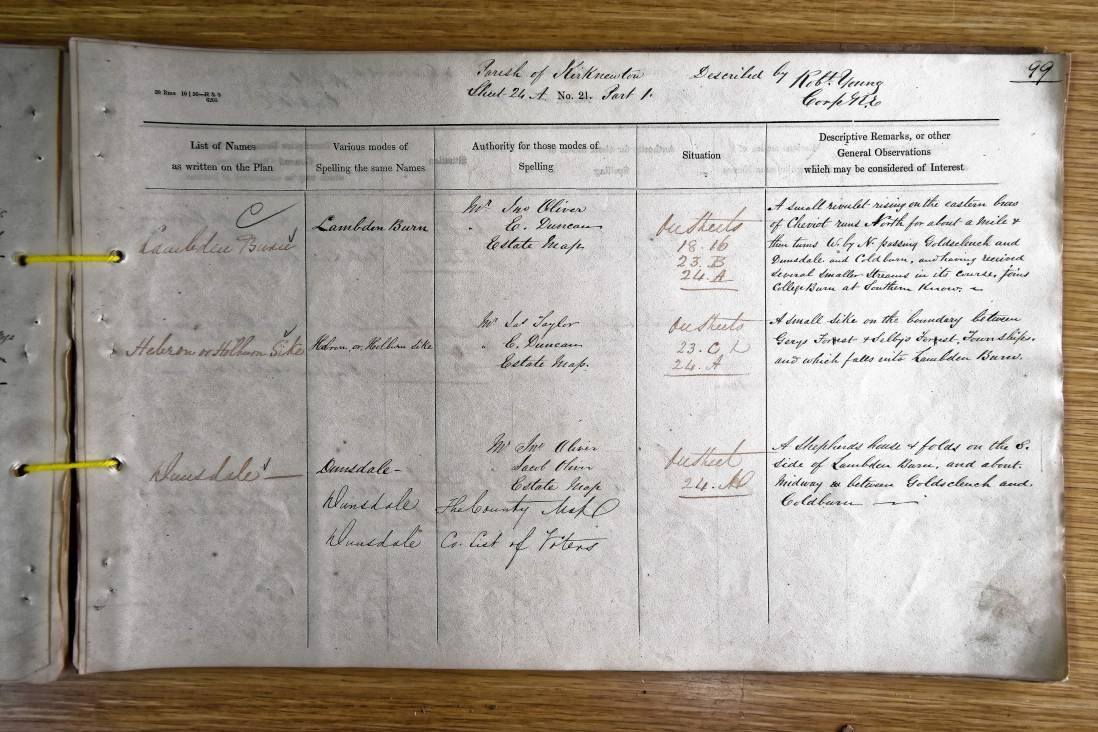 99
Parish of Kirknewton Described by Robt. Young
Sheet 24 A. No. 21. Part 1. Corpl RE
List of Names
as written on the Plan
Various modes of
Spelling the same Names
Authority for those modes of
Spelling
Situation
Descriptive Remarks, or other
General Observations
which may be considered of Interest
Lambden Burn
Lambden Burn
Mr. Jno Oliver
" E. Duncan
Estate Map
On Sheets
18. 16
23. B
24. A
A small rivulet rising on the eastern brow
of Cheviot runs North for about a Mile &
then turns W. by N. passing Goldscleuch and
Dunsdale and Coldburn, and having received
several smaller Streams in its course, joins
College Burn at Southern Know.
Hebron or Holburn Sike
Hebron, or, Holburn Sike
Mr Jas Taylor
" E. Duncan
Estate Map.
On Sheets
23. C
24. A
A small sike on the boundary between
Greys Forest & Selby's Forest, Townships,
and which falls into Lambden Burn.
Dunsdale
Dunsdale
Dunsdale
Dunsdale
Mr Jno Oliver
Jacob Oliver
Estate Map
The County Map
Co. List of Voters
On Sheet
24. A
A Shepherds house & folds on the E.
side of Lambden Burn, and about
Midway between Goldscleuch and
Coldburn